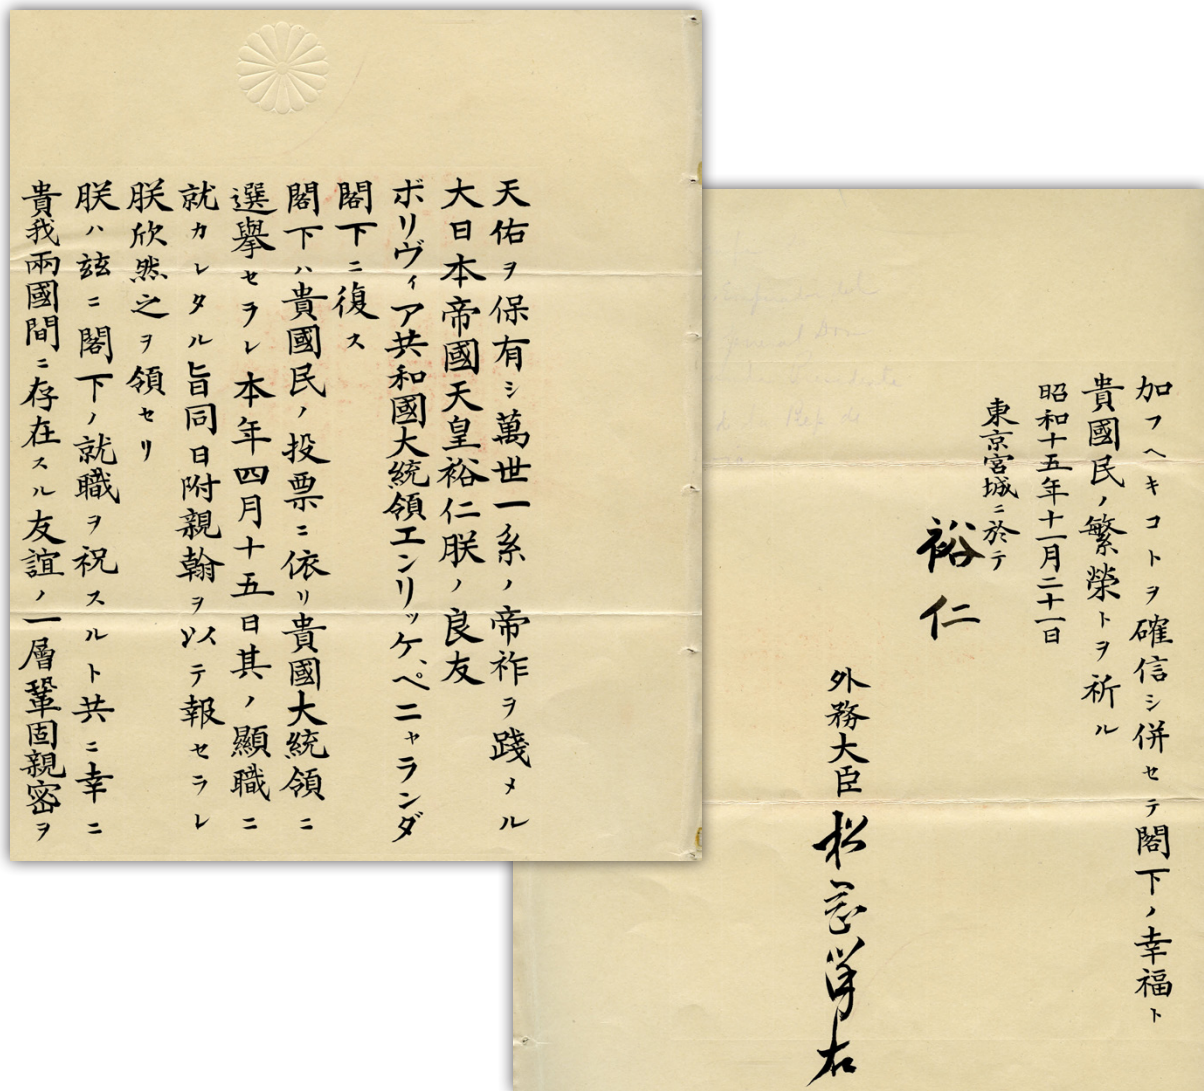 天佑ヲ保有シ萬世一系ノ帝祚ヲ踐メル
大日本帝國天皇裕仁朕ノ良友
ボリヴィア共和國大統領エンリッケ、ペニャランダ
閣下ニ復ス
閣下ハ貴國民ノ投票ニ依リ貴國大統領ニ
選擧セラレ本年四月十五日其ノ顯職ニ
就カレタル旨同日附親翰ヲ以テ報セラレ
朕欣然之ヲ領セリ
朕ハ玆ニ閣下ノ就職ヲ祝スルト共ニ幸ニ
貴我兩國間ニ存在スル友誼ノ一層鞏固親密ヲ
加フヘキコトヲ確信シ併セテ閣下ノ幸福ト
貴國民ノ繁榮トヲ祈ル
昭和十五年十一月二十一日
東京宮城ニ於テ
裕仁
外務大臣 松岡洋右